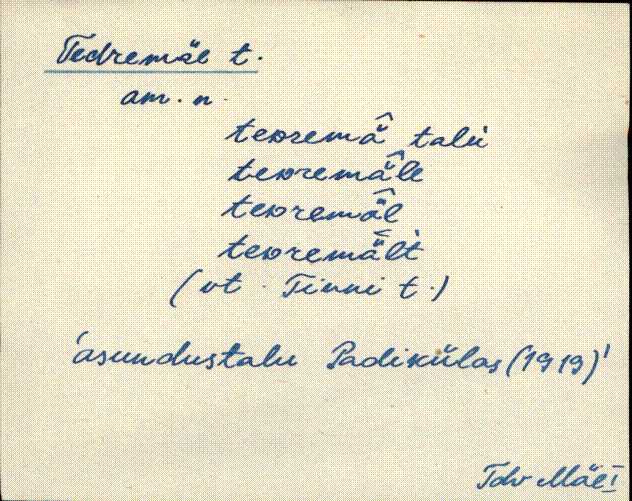 Tedremäe t.
am. n.
teᴅremä̂ talu
teᴅremä̂le
teᴅremä̂l
teᴅremä̀lt
(vt. Tinni t.)
'asundustalu Padikülas (1919)'